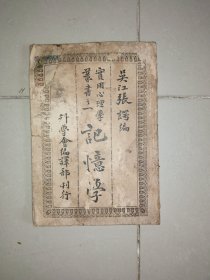 吳江張諤編
實用心理學
叢書之一
記憶學
外學會編譯部刊行